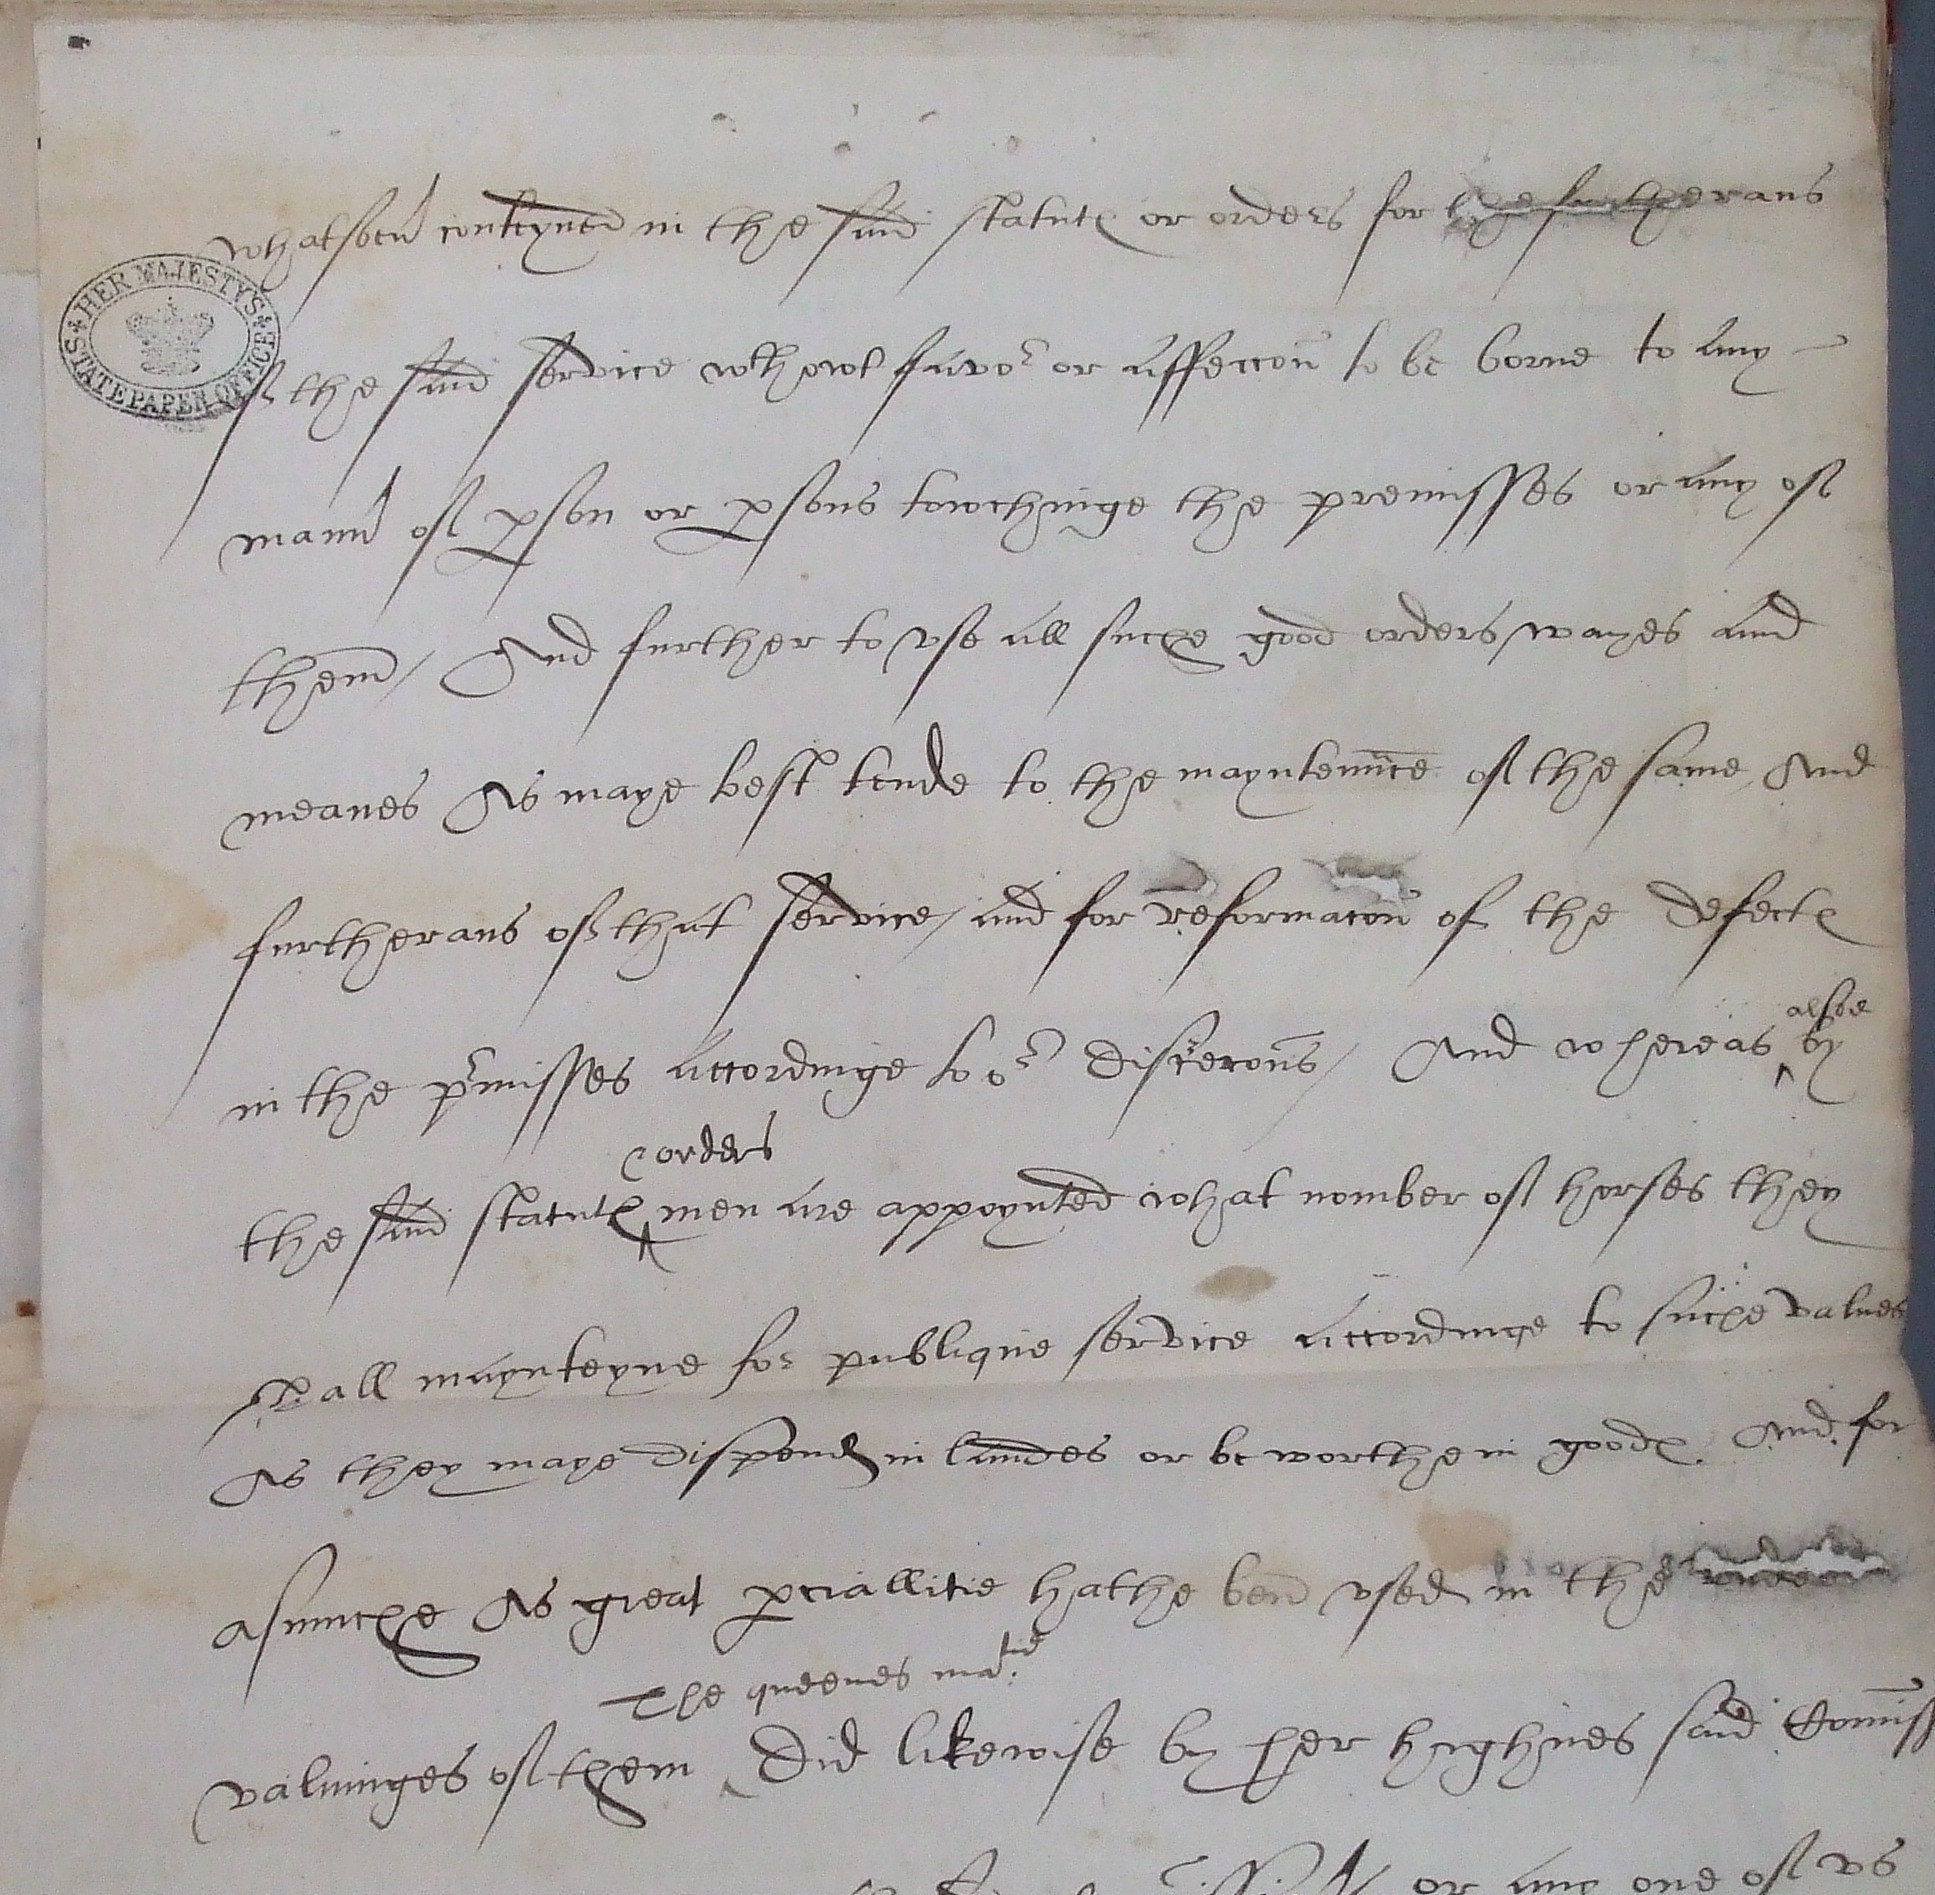 whatsoeu' conteyned in the said statutes or orders for the furtherans
HER MAJESTY'S STATE PAPER OFFICE
of the said service wthowt favor or affeccon to be borne to any
mann' of pson or psons towchinge the premisses or any of
them / And further to vse all suche good orders wayes and
meanes As maye best tende to the mayntennce of the same, And
furtherans of that service / and for reformacon of the defectes
in the pmisses accordinge to or discrecons / And whereas
alsoe
by
orders
the said statutes men are appoynted what nomber of horses they
shall maynteyne for publique service accordinge to suche values
As they maye dispend in landes or be worthe in goodes. And for
asmuche As great pciallitie hathe ben vsed in the
The queenes matie
valuinges of them Did likewise by her highnes said Comiss
or any one of vs